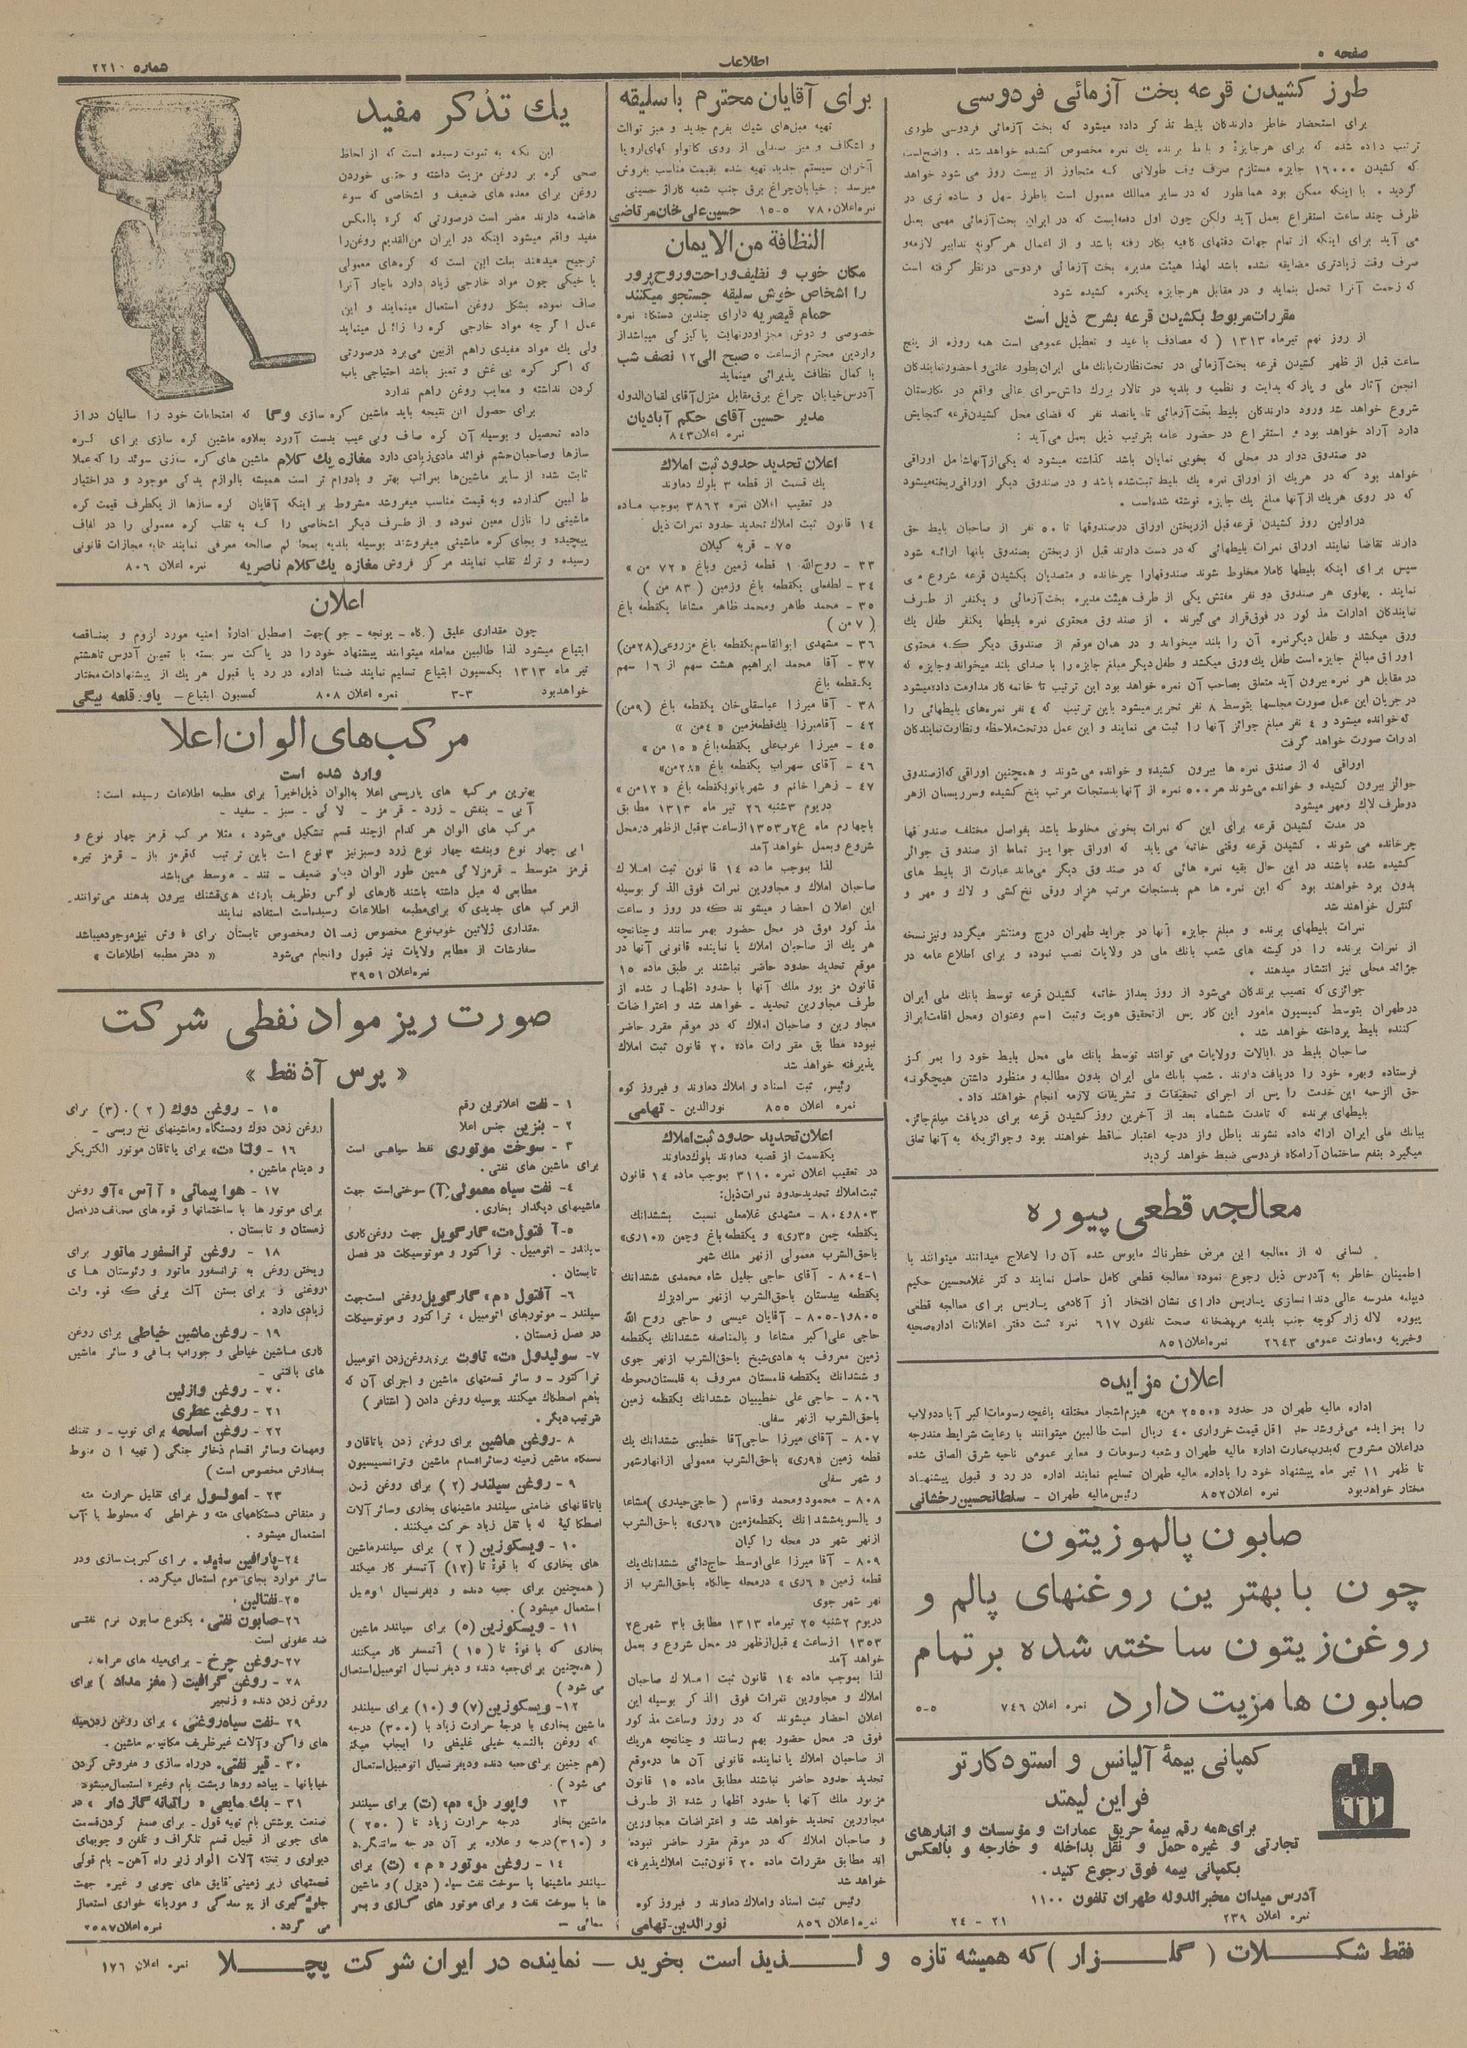 صفحه ٥
اطلاعات
شماره ٢٢١٠
طرز کشیدن قرعه بخت آزمائی فردوسی
برای استحضار خاطر دارندگان بلیط تذکر داده میشود که بخت آزمائی فردوسی طوری
ترتیب داده شده که برای هر جایزه و بلیط برنده یک نمره مخصوص کشیده خواهد شد . واضح است
که کشیدن ١٦٠٠٠ جایزه مستلزم صرف وقت طولانی که متجاوز از بیست روز می شود خواهد
گردید . با اینکه ممکن بود همانطور که در سایر ممالک معمول است باطرز سهل و ساده تری در
ظرف چند ساعت استقراع بعمل آید ولکن چون اول دفعه‌ایست که در ایران بخت‌آزمائی مهمی بعمل
می آید برای اینکه از تمام جهات دقتهای کافیه بکار رفته باشد و از اعمال هرگونه تدابیر لازمه و
صرف وقت زیادتری مضایقه نشده باشد لهذا هیئت مدیره بخت آزمائی فردوسی در نظر گرفته است
که زحمت آنرا تحمل بنماید و در مقابل هر جایزه یکنمره کشیده شود
مقررات مربوط بکشیدن قرعه بشرح ذیل است
از روز نهم تیرماه ١٣١٣ ( که مصادف با عید و تعطیل عمومی است همه روزه از پنج
ساعت قبل از ظهر کشیدن قرعه بخت‌آزمائی در تحت نظارت بانک ملی ایران بطور علنی و احضور نمایندگان
انجمن آثار ملی و پارکه بدایت و نظمیه و بلدیه در تالار بزرگ دانش‌سرای عالی واقع در نگارستان
شروع خواهد شد ورود دارندگان بلیط بخت‌آزمائی تا پانصد نفر که فضای محل کشیدن قرعه گنجایش
دارد آزاد خواهد بود و استقراع در حضور عامه بترتیب ذیل بعمل می‌آید :
دو صندوق دوار در محلی که بخوبی نمایان باشد گذاشته میشود که یکی از آنها شامل اوراقی
خواهد بود که در هر یک از اوراق نمره یک بلیط ثبت شده باشد و در صندوق دیگر اوراقی ریخته میشود
که در روی هر یک از آنها مبلغ یک جایزه نوشته شده است .
در اولین روز کشیدن قرعه قبل از ریختن اوراق در صندوقها تا ٥٠ نفر از صاحبان بلیط حق
دارند تقاضا نمایند اوراق نمرات بلیطهائی که در دست دارند قبل از ریختن بصندوق بآنها ارائه شود
سپس برای اینکه بلیطها کاملا مخلوط شوند صندوقها را چرخانده و متصدیان بکشیدن قرعه شروع می
نمایند . پهلوی هر صندوق دو نفر مفتش یکی از طرف هیئت مدیره بخت‌آزمائی و یکنفر از طرف
نمایندگان ادارات مذکور در فوق قرار می‌گیرند . از صندوق محتوی نمره بلیطها یکنفر طفل یک
ورق میکشد و طفل دیگر نمره آن را بلند میخواند و در همان موقع از صندوق دیگر که محتوی
اوراق مبالغ جایزه است طفل یک ورق میکشد و طفل دیگر مبلغ جایزه را با صدای بلند میخواند و جایزه که
در مقابل هر نمره بیرون آید متعلق بصاحب آن نمره خواهد بود این ترتیب تا خاتمه کار مداومت داده میشود
در جریان این عمل صورت مجلسها بتوسط ٨ نفر تحریر میشود باین ترتیب که ٤ نفر نمره‌های بلیطهائی را
که خوانده میشود و ٤ نفر مبلغ جوائز آنها را ثبت می نمایند و این عمل در تحت ملاحظه و نظارت نمایندگان
ادارات صورت خواهد گرفت
اوراقی که از صندق نمره ها بیرون کشیده و خوانده می‌شوند و همچنین اوراقی که از صندوق
جوائز بیرون کشیده و خوانده می‌شوند هر ٥٠٠ نمره از آنها بدستجات مرتب بنخ کشیده و سر ریسمان از هر
دو طرف لاک و مهر میشود
در مدت کشیدن قرعه برای این که نمرات بخوبی مخلوط باشد بفواصل مختلفه صندوقها
چرخانده می شوند . کشیدن قرعه وقتی خاتمه می‌یابد که اوراق جوایز تماما از صندوق جوائز
کشیده شده باشند در این حال بقیه نمره هائی که در صندوق دیگر می‌ماند عبارت از بلیط های
بدون برد خواهند بود که این نمره ها هم بدستجات مرتب هزار ورقی نخ‌کشی و لاک و مهر و
کنترل خواهند شد
نمرات بلیطهای برنده و مبلغ جایزه آنها در جراید طهران درج و منتشر میگردد و نیز نسخه
از نمرات برنده را در گیشه های شعب بانک ملی در ولایات نصب نموده و برای اطلاع عامه در
جرائد محلی نیز انتشار میدهند .
جوائزی که نصیب برندگان می‌شود از روز بعد از خاتمه کشیدن قرعه توسط بانک ملی ایران
در طهران بتوسط کمیسیون مامور این کار پس از تحقیق هویت و ثبت اسم و عنوان و محل اقامت ابراز
کننده بلیط پرداخته خواهد شد .
صاحبان بلیط در ایالات و ولایات می توانند توسط بانک ملی محل بلیط خود را بمرکز
فرستاده و بهره خود را دریافت دارند . شعب بانک ملی ایران بدون مطالبه و منظور داشتن هیچگونه
حق الزحمه این خدمت را پس از اجرای تحقیقات و تشریفات لازمه انجام خواهند داد .
بلیطهای برنده که تا مدت ششماه بعد از آخرین روز کشیدن قرعه برای دریافت مبلغ جائزه
ببانک ملی ایران ارائه داده نشوند باطل و از درجه اعتبار ساقط خواهند بود و جوائزیکه به آنها تعلق
میگیرد بنفع ساختمان آرامگاه فردوسی ضبط خواهد گردید
معالجه قطعی پیوره
کسانی که از معالجه این مرض خطرناک مایوس شده آن را لاعلاج میدانند میتوانند با
اطمینان خاطر به آدرس ذیل رجوع نموده معالجه قطعی کامل حاصل نمایند دکتر غلامحسین حکیم
دیپلمه مدرسه عالی دندانسازی پاریس دارای نشان افتخار از آکادمی پاریس برای معالجه قطعی
پیوره لاله زار کوچه جنب بلدیه مریضخانه صحت تلفون ٦١٧ نمره ثبت دفتر اعلانات اداره صحیه
و خیریه و معاونت عمومی ٢٦٤٣ نمره اعلان ٨٥١
اعلان مزایده
اداره مالیه طهران در حدود «٢٥٥٠ من» هیزم اشجار مختلفه باغچه رسومات اکبر آباد دولاب
را بمزایده می‌فروشد حد اقل قیمت خرواری ٤٠ ریال است طالبین میتوانند با رعایت شرایط مندرجه
در اعلان مشروح که بدرب عمارت اداره مالیه طهران و شعبه رسومات و معابر عمومی ناحیه شرق الصاق شده
تا ظهر ١١ تیر ماه پیشنهاد خود را باداره مالیه طهران تسلیم نمایند اداره در رد و قبول پیشنهاد
مختار خواهد بود نمره اعلان ٨٥٢ رئیس مالیه طهران - سلطانحسین رخشانی
صابون پالموزیتون
چون با بهترین روغنهای پالم و
روغن زیتون ساخته شده بر تمام
صابون ها مزیت دارد نمره اعلان ٧٤٦ ٥-٥
کمپانی بیمهٔ آلیانس و استودکارتر
فراین لیمتد
برای همه رقم بیمهٔ حریق عمارات و مؤسسات و انبارهای
تجارتی و غیره حمل و نقل بداخله و خارجه و بالعکس
بکمپانی بیمه فوق رجوع کنید .
آدرس میدان مخبرالدوله طهران تلفون ١١٠٠
نمره اعلان ٢٣٩ ٢١ - ٢٤
برای آقایان محترم با سلیقه
تهیه مبل‌های شیک بفرم جدید و میز توالت
و اشکاف و میز صندلی از روی کاتولوکهای اروپا
آخرین سیستم جدید تهیه شده بقیمت مناسب بفروش
میرسد : خیابان چراغ برق جنب شعبه گاراژ حسینی
نمره اعلان ٧٨٠ ٥-١٥ حسین علی خان مرتاضی
النظافة من الایمان
مکان خوب و نظیف و راحت و روح پرور
را اشخاص خوش سلیقه جستجو میکنند
حمام قیصریه دارای چندین دستگاه نمره
خصوصی و دوش مجزا و در نهایت پاکیزگی میباشد از
واردین محترم از ساعت ٥ صبح الی ١٢ نصف شب
با کمال نظافت پذیرائی مینماید
آدرس خیابان چراغ برق مقابل منزل آقای لقمان الدوله
مدیر حسین آقای حکم آبادیان
نمره اعلان ٨٤٣
اعلان تحدید حدود ثبت املاک
یک قسمت از قطعه ٣ بلوک دماوند
در تعقیب اعلان نمره ٣٨٦٢ بموجب ماده
١٤ قانون ثبت املاک تحدید حدود نمرات ذیل
٧٥ - قریه گیلان
٣٣ - روح‌الله ١ قطعه زمین و باغ « ٧٢ من »
٣٤ - لطفعلی یکقطعه باغ و زمین ( ٨٣ من )
٣٥ - محمد طاهر و محمد ظاهر مشاعا یکقطعه باغ
( ٧ من )
٣٦ - مشهدی ابوالقاسم یکقطعه باغ مزروعی (٢٨من)
٣٧ - آقا محمد ابراهیم هشت سهم از ١٦ سهم
یکقطعه باغ
٣٨ - آقا میرزا عباسقلی خان یکقطعه باغ (٩من)
٤٢ - آقامیرزا یک قطعه زمین « ٤من »
٤٥ - میرزا عرب‌علی یکقطعه باغ « ١٥ من »
٤٦ - آقای سهراب یکقطعه باغ «٢٨من»
٤٧ - زهرا خانم و شهربانو یکقطعه باغ «١٢من»
در یوم ٣شنبه ٢٦ تیر ماه ١٣١٣ مطابق
با چهارم ماه ع٢ر١٣٥٣ از ساعت ٣ قبل از ظهر در محل
شروع و بعمل خواهد آمد
لذا بموجب ماده ١٤ قانون ثبت املاک
صاحبان املاک و مجاورین نمرات فوق الذکر بوسیله
این اعلان احضار میشوند که در روز و ساعت
مذکور فوق در محل حضور بهمرسانند و چنانچه
هر یک از صاحبان املاک یا نماینده قانونی آنها در
موقع تحدید حدود حاضر نباشند بر طبق ماده ١٥
قانون مزبور ملک آنها با حدود اظهار شده از
طرف مجاورین تحدید - خواهد شد و اعتراضات
مجاورین و صاحبان املاک که در موقع مقرر حاضر
نبوده مطابق مقررات ماده ٢٠ قانون ثبت املاک
پذیرفته خواهد شد
رئیس ثبت اسناد و املاک دماوند و فیروز کوه
نمره اعلان ٨٥٥ نورالدین - تهامی
اعلان تحدید حدود ثبت املاک
یکقسمت از قصبه دماوند بلوک دماوند
در تعقیب اعلان نمره ٣١١٠ بموجب ماده ١٤ قانون
ثبت املاک تحدید حدود نمرات ذیل:
٨٠٣و٨٠٤ - مشهدی غلامعلی نسبت بششدانگ
یکقطعه چمن «٣ری» و یکقطعه باغ و چمن «١٠ری»
باحق‌الشرب معمولی از نهر ملک شهر
٨٠٤-١ - آقای حاجی جلیل شاه محمدی ششدانگ
یکقطعه بیدستان باحق‌الشرب از نهر سرادیزک
٨٠٥و١-٨٠٥ - آقایان عیسی و حاجی روح الله
حاجی علی اکبر مشاعا و بالمناصفه ششدانگ یکقطعه
زمین معروف به هادی شیخ باحق‌الشرب از نهر جوی
و ششدانگ یکقطعه قلمستان معروف به قلمستان محوطه
٨٠٦ - حاجی علی خطیبیان ششدانگ یکقطعه زمین
باحق‌الشرب از نهر سفلی
٨٠٧ - آقای میرزا حاجی آقا خطیبی ششدانگ یک
قطعه زمین «٩ری» باحق‌الشرب معمولی از انهار شهر
و شهر سفلی
٨٠٨ - محمود و محمد و قاسم (حاجی حیدری)مشاعا
و بالسویه ششدانگ یکقطعه زمین «٦ری» باحق‌الشرب
از نهر شهر در محله را کیان
٨٠٩ - آقا میرزا علی اوسط حاج‌دائی ششدانگ یک
قطعه زمین « ٦ری » در محله چالکاه باحق‌الشرب از
نهر شهر جوی
در یوم ٢شنبه ٢٥ تیرماه ١٣١٣ مطابق با٣ شهرع٢
١٣٥٣ از ساعت ٤ قبل از ظهر در محل شروع و بعمل
خواهد آمد
لذا بموجب ماده ١٤ قانون ثبت املاک صاحبان
املاک و مجاورین نمرات فوق الذکر بوسیله این
اعلان احضار میشوند که در روز و ساعت مذکور
فوق در محل حضور بهم رسانند و چنانچه هر یک
از صاحبان املاک یا نماینده قانونی آن ها در موقع
تحدید حدود حاضر نباشند مطابق ماده ١٥ قانون
مزبور ملک آنها با حدود اظهار شده از طرف
مجاورین تحدید خواهد شد و اعتراضات مجاورین
و صاحبان املاک که در موقع مقرر حاضر نبوده
اند مطابق مقررات ماده ٢٠ قانون ثبت املاک پذیرفته
خواهد شد
رئیس ثبت اسناد و املاک دماوند و فیروز کوه
نمره اعلان ٨٥٦ نورالدین-تهامی
یک تذکر مفید
این نکته به ثبوت رسیده است که از لحاظ
صحی کره بر روغن مزیت داشته و حتی خوردن
روغن برای معده های ضعیف و اشخاصی که سوء
هاضمه دارند مضر است درصورتی که کره بالعکس
مفید واقع میشود اینکه در ایران من القدیم روغن را
ترجیح میدهند بعلت این است که کره‌های معمولی
یا خیکی چون مواد خارجی زیاد دارد ناچار آنرا
صاف نموده بشکل روغن استعمال مینمایند و این
عمل اگر چه مواد خارجی کره را زائل مینماید
ولی یک مواد مفیدی را هم از بین می‌برد درصورتی
که اگر کره بی غش و تمیز باشد احتیاجی باب
کردن نداشته و معایب روغن را هم ندارد
برای حصول این نتیجه باید ماشین کره سازی وگما که امتحانات خود را سالیان دراز
داده تحصیل و بوسیله آن کره صاف و بی عیب بدست آورد بعلاوه ماشین کره سازی برای کره
سازها و صاحبان حشم فوائد مادی زیادی دارد مغازه یک کلام ماشین های کره سازی سوئد را که عملا
ثابت شده از سایر ماشین‌ها بمراتب بهتر و بادوام تر است همیشه بالوازم یدکی موجود و در اختیار
طالبین گذارده و به قیمت مناسب میفروشد مشروط بر اینکه آقایان کره سازها از یکطرف قیمت کره
ماشینی را نازل معین نموده و از طرف دیگر اشخاصی را که به تقلب کره معمولی را در لفاف
پیچیده و بجای کره ماشینی میفروشند بوسیله بلدیه بمحاکم صالحه معرفی نمایند تا به مجازات قانونی
رسیده و ترک تقلب نمایند مرکز فروش مغازه یک کلام ناصریه نمره اعلان ٨٠٦
اعلان
چون مقداری علیق (کاه - یونجه - جو )جهت اصطبل ادارهٔ امنیه مورد لزوم و بمناقصه
ابتیاع میشود لذا طالبین معامله میتوانند پیشنهاد خود را در پاکت سر بسته با تعیین آدرس تا هشتم
تیر ماه ١٣١٣ بکمسیون ابتیاع تسلیم نمایند ضمنا اداره در رد یا قبول هر یک از پیشنهادات مختار
خواهد بود ٣-٣ نمره اعلان ٨٠٨ کمسیون ابتیاع - یاور قلعه بیگی
مرکب‌های الوان اعلا
وارد شده است
بهترین مرکب های پاریسی اعلا به الوان ذیل اخیراً برای مطبعه اطلاعات رسیده است :
آبی - بنفش - زرد - قرمز - لاکی - سبز - سفید -
مرکب های الوان هر کدام از چند قسم تشکیل می‌شود ، مثلا مرکب قرمز چهار نوع و
آبی چهار نوع و بنفشه چهار نوع زرد و سبز نیز ٣ نوع است باین ترتیب که قرمز باز - قرمز تیره
قرمز متوسط - قرمز لاکی همین طور الوان دیگر ضعیف - تند - متوسط می‌باشد
مطابعی که میل داشته باشند کارهای لوکس و ظریف با رنگ های قشنگ بیرون بدهند می‌توانند
از مرکب های جدیدی که برای مطبعه اطلاعات رسیده است استفاده نمایند
مقداری ژلاتین خوب نوع مخصوص زمستان و مخصوص تابستان برای فروش نیز موجود میباشد
سفارشات از مطابع ولایات نیز قبول و انجام می‌شود « دفتر مطبعه اطلاعات »
نمره اعلان ٣٩٥١
صورت ریز مواد نفطی شرکت
« پرس آذنفط »
١ - نفت اعلاترین رقم
٢ - بنزین جنس اعلا
٣ - سوخت موتوری نفط سیاهی است
برای ماشین های نفتی .
٤- نفت سیاه معمولی (آ) سوختی است جهت
ماشینهای دیگدار بخاری .
٥- آفتول «ت» گارگویل جهت روغن‌کاری
سیلندر - اتومبیل . تراکتور و موتوسیکلت در فصل
تابستان .
٦- آفتول «م» گارگویل روغنی است جهت
سیلندر - موتورهای اتومبیل ، تراکتور و موتوسیکلت
در فصل زمستان .
٧- سولیدول «ت» تاوت برای روغن زدن اتومبیل
تراکتور - و سائر قسمتهای ماشین و اجزای آن که
باهم اصطکاک میکنند بوسیله روغن دادن ( اشتافر )
ترتیب دیگر .
٨ - روغن ماشین برای روغن زدن یاتاقان و
دستگاه ماشین زمینه و سائر اقسام ماشین و ترانسیسیون
٩ - روغن سیلندر (٢) برای روغن زدن
یاتاقانهای ضامنی سیلندر ماشینهای بخاری و سائر آلات
اصطکاکیهٔ که با ثقل زیاد حرکت میکنند .
١٠ - ویسکوزین (٢) برای سیلندر ماشین
های بخاری که با قوهٔ تا (١٢) آتمسفر کار میکند
(همچنین برای جعبه دنده و دیفرنسیال اتومبیل
استعمال میشود ) .
١١ - ویسکوزین (٥) برای سیلندر ماشین
بخاری که با قوهٔ تا (١٥) آتمسفر کار میکنند
( همچنین برای جعبه دنده و دیفرنسیال اتومبیل استعمال
می شود )
١٢- ویسکوزین (٧) و (١٠) برای سیلندر
ماشین بخاری با درجهٔ حرارت زیاد با (٣٠٠) درجه
که روغن بالنسبه خیلی غلیظی را ایجاب میکند
(هم چنین برای جعبه دنده و دیفرنسیال اتومبیل استعمال
می شود ) .
١٣ واپور «ل» «م» (ت) برای سیلندر
ماشین بخار درجه حرارت زیاد تا (٢٥٠)
و (٣١٠)درجه و علاوه بر آن درجه
١٤ - روغن موتور «م» (ت) برای
سیلندر ماشینها با سوخت نفت سیاه (دیزل) و ماشین
ها با سوخت نفت و برای موتور های گازی و بحر
پیمائی -
١٥ - روغن دوک (٢) . (٣) برای
روغن زدن دوک و دستگاه و ماشینهای نخ ریسی -
١٦ - ولتا «ت» برای یاتاقان موتور الکتریکی
و دینام ماشین .
١٧ - هوا پیمائی « آآس »آو روغن
برای موتور ها با ساختمانها و قوه های مختلف در فصل
زمستان و تابستان .
١٨ - روغن ترانسفور ماتور برای
ریختن روغن به ترانسفور ماتور و رئوستان های
روغنی و برای بستن آلت برقی که قوه ولت
زیادی دارد .
١٩ - روغن ماشین خیاطی برای روغن
کاری ماشین خیاطی و جوراب بافی و سائر ماشین
های بافتنی -
٢٠ - روغن وازلین
٢١ - روغن عطری
٢٢ - روغن اسلحه برای توپ - و تفنگ
و مهمات و سائر اقسام ذخائر جنگی ( تهیه آن منوط
بسفارش مخصوص است )
٢٣ - امولسول برای تقلیل حرارت مته
و منقاش دستگاههای مته و خراطی که مخلوط با آب
استعمال میشود .
٢٤-پارافین سفید . برای کبریت سازی و در
سائر موارد بجای موم استعمال میگردد .
٢٥- نفتالین .
٢٦-صابون نفتی . یکنوع صابون نرم نفتی
ضد عفونی است
٢٧-روغن چرخ - برای میله های عراده .
٢٨ - روغن گرافیت ( مغز مداد ) برای
روغن زدن دنده و زنجیر
٢٩ -نفت سیاه روغنی ، برای روغن زدن میله
های واگن و آلات غیر ظریف مکانیسم ماشین .
٣٠ - قیر نفتی . در راه سازی و مفروش کردن
خیابانها - پیاده روها و پشت بام وغیره استعمال میشود
٣١ - یک مایعی « راتمانه گازدار » در
صنعت پوشش بام تهیه قول - برای صمغ کردن قسمت
های چوبی از قبیل قسم تلگراف و تلفن و چوبهای
دیواری و تخته آلات الوار زیر راه آهن - بام قولی
قسمتهای زیر زمینی قایق های چوبی و غیره جهت
جلوگیری از پوسیدگی و موریانه خواری استعمال
می گردد . نمره اعلان ٢٥٨٧
فقط شکلات ( گلزار )که همیشه تازه و لذیذ است بخرید - نماینده در ایران شرکت پچلا نمره اعلان ١٧٦